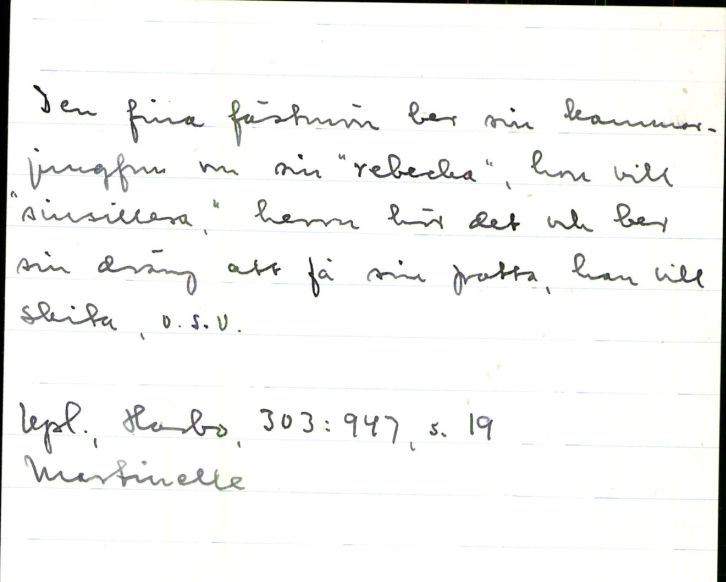 Den fina fästmön ber sin kammar-
jungfru om sin "rebecka", hon vill
"sinsillera," herrn hör det och ber
sin dräng att få sin potta, han vill
skita, o.s.v.
Upl., Harbo, 303:947, s. 19
Martinelle